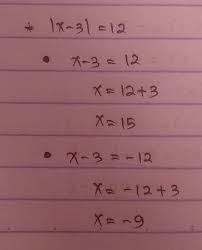 * |x-3| = 12
• x-3 = 12
x = 12+3
x = 15
• x-3 = -12
x = -12+3
x = -9